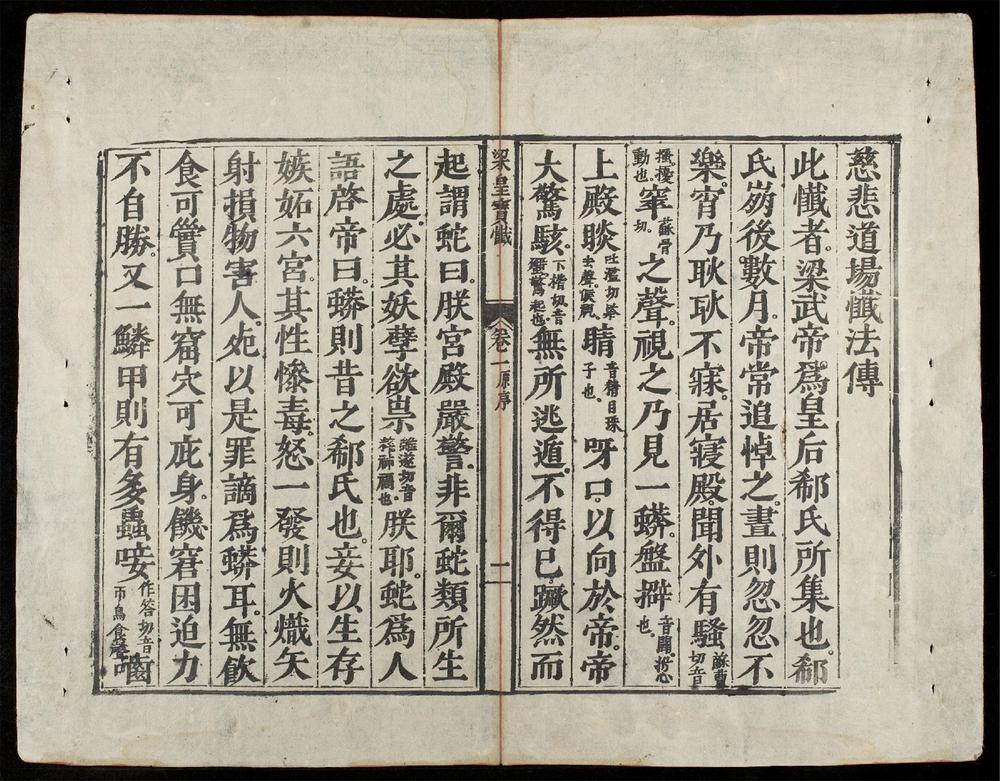 慈悲道場懺法傳
此懺者。梁武帝。爲皇后郗氏所集也。郗
氏崩後。數月。帝常追悼之。晝則忽忽不
樂。宵乃耿耿不寐。居寢殿。聞外有騷蘇曹切音
搔擾動也。窣蘇骨切。之聲。視之乃見一蟒。盤擗音闢。也。
上殿睒吐濫切去聲。睛音精目珠子也。呀口。以向於帝。帝
大驚駭。下楷切音驚起也。無所逃遁。不得已。蹶然而
梁皇寶懺 卷一原序 二
起謂蛇曰。朕宮殿嚴警。非爾蛇類所生
之處。必其妖孽欲祟雖遂切音神禍也。朕耶。蛇爲人
語啓帝曰。蟒則昔之郗氏也。妾以生存
嫉妬六宮。其性慘毒。怒一發則火熾矢
射損物害人。死以是罪謫爲蟒耳。無飲
食可實口。無窟穴可庇身。饑窘困迫力
不自勝。又一鱗甲則有多蟲唼作答切音帀鳥食聲嚙